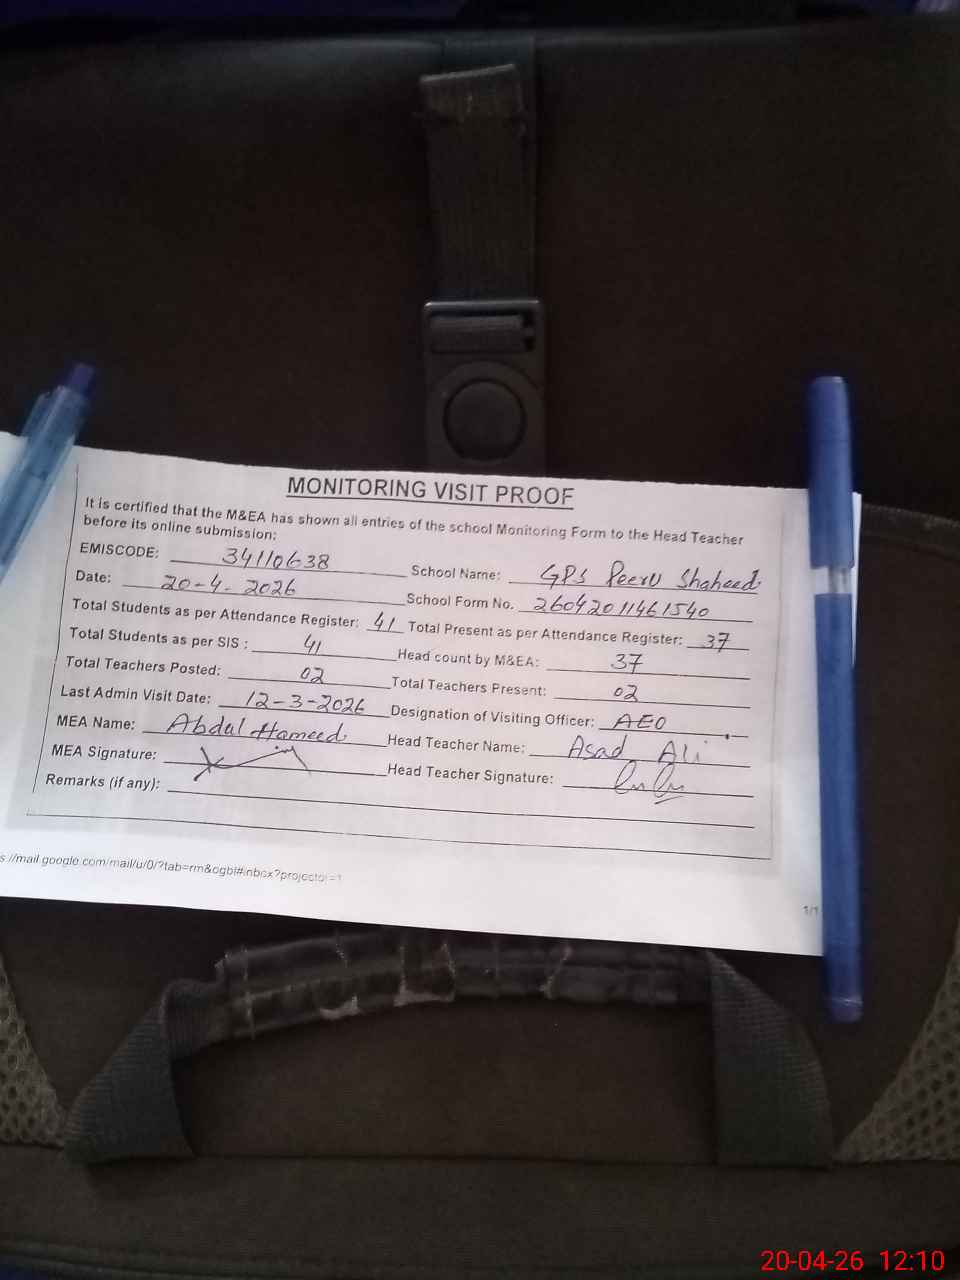 MONITORING VISIT PROOF
It is certified that the M&EA has shown all entries of the school Monitoring Form to the Head Teacher
before its online submission:
EMISCODE: 34110638 School Name: GPS Peeru Shaheed
Date: 20-4-2026 School Form No. 26042011461540
Total Students as per Attendance Register: 41 Total Present as per Attendance Register: 37
Total Students as per SIS : 41 Head count by M&EA: 37
Total Teachers Posted: 02 Total Teachers Present: 02
Last Admin Visit Date: 12-3-2026 Designation of Visiting Officer: AEO
MEA Name: Abdul Hameed Head Teacher Name: Asad Ali
MEA Signature: Head Teacher Signature:
Remarks (if any):
s://mail.google.com/mail/u/0/?tab=rm&ogbl#inbox?projector=1
1/1
20-04-26 12:10